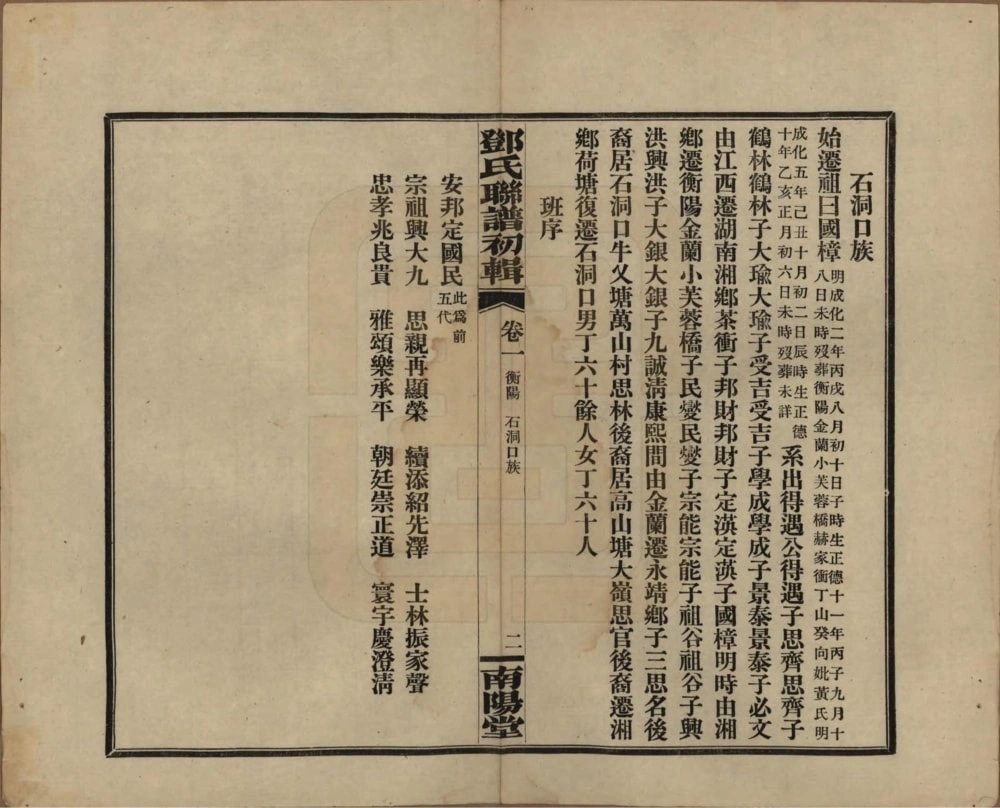 石洞口族
始遷祖曰國樟明成化二年丙戌八月初十日子時生正德十一年丙子九月十
八日未時歿葬衡陽金蘭小芙蓉橋赫家衝丁山癸向妣黃氏明
成化五年己丑十月初二日辰時生正德
十年乙亥正月初六日未時歿葬未詳系出得遇公得遇子思齊思齊子
鶴林鶴林子大瑜大瑜子受吉受吉子學成學成子景泰景泰子必文
由江西遷湖南湘鄉茶衝子邦財邦財子定漢定漢子國樟明時由湘
鄉遷衡陽金蘭小芙蓉橋子民燮民燮子宗能宗能子祖谷祖谷子興
洪興洪子大銀大銀子九誠清康熙間由金蘭遷永靖鄉子三思名後
裔居石洞口牛乂塘萬山村思林後裔居高山塘大嶺思官後裔遷湘
鄉荷塘復遷石洞口男丁六十餘人女丁六十人
班序
安邦定國民此爲前
五代
宗祖興大九 思親再顯榮 續添紹先澤 士林振家聲
忠孝兆良貴 雅頌樂承平 朝廷崇正道 寰宇慶澄清
鄧氏聯譜初輯 卷一 衡陽 石洞口族 二 南陽堂